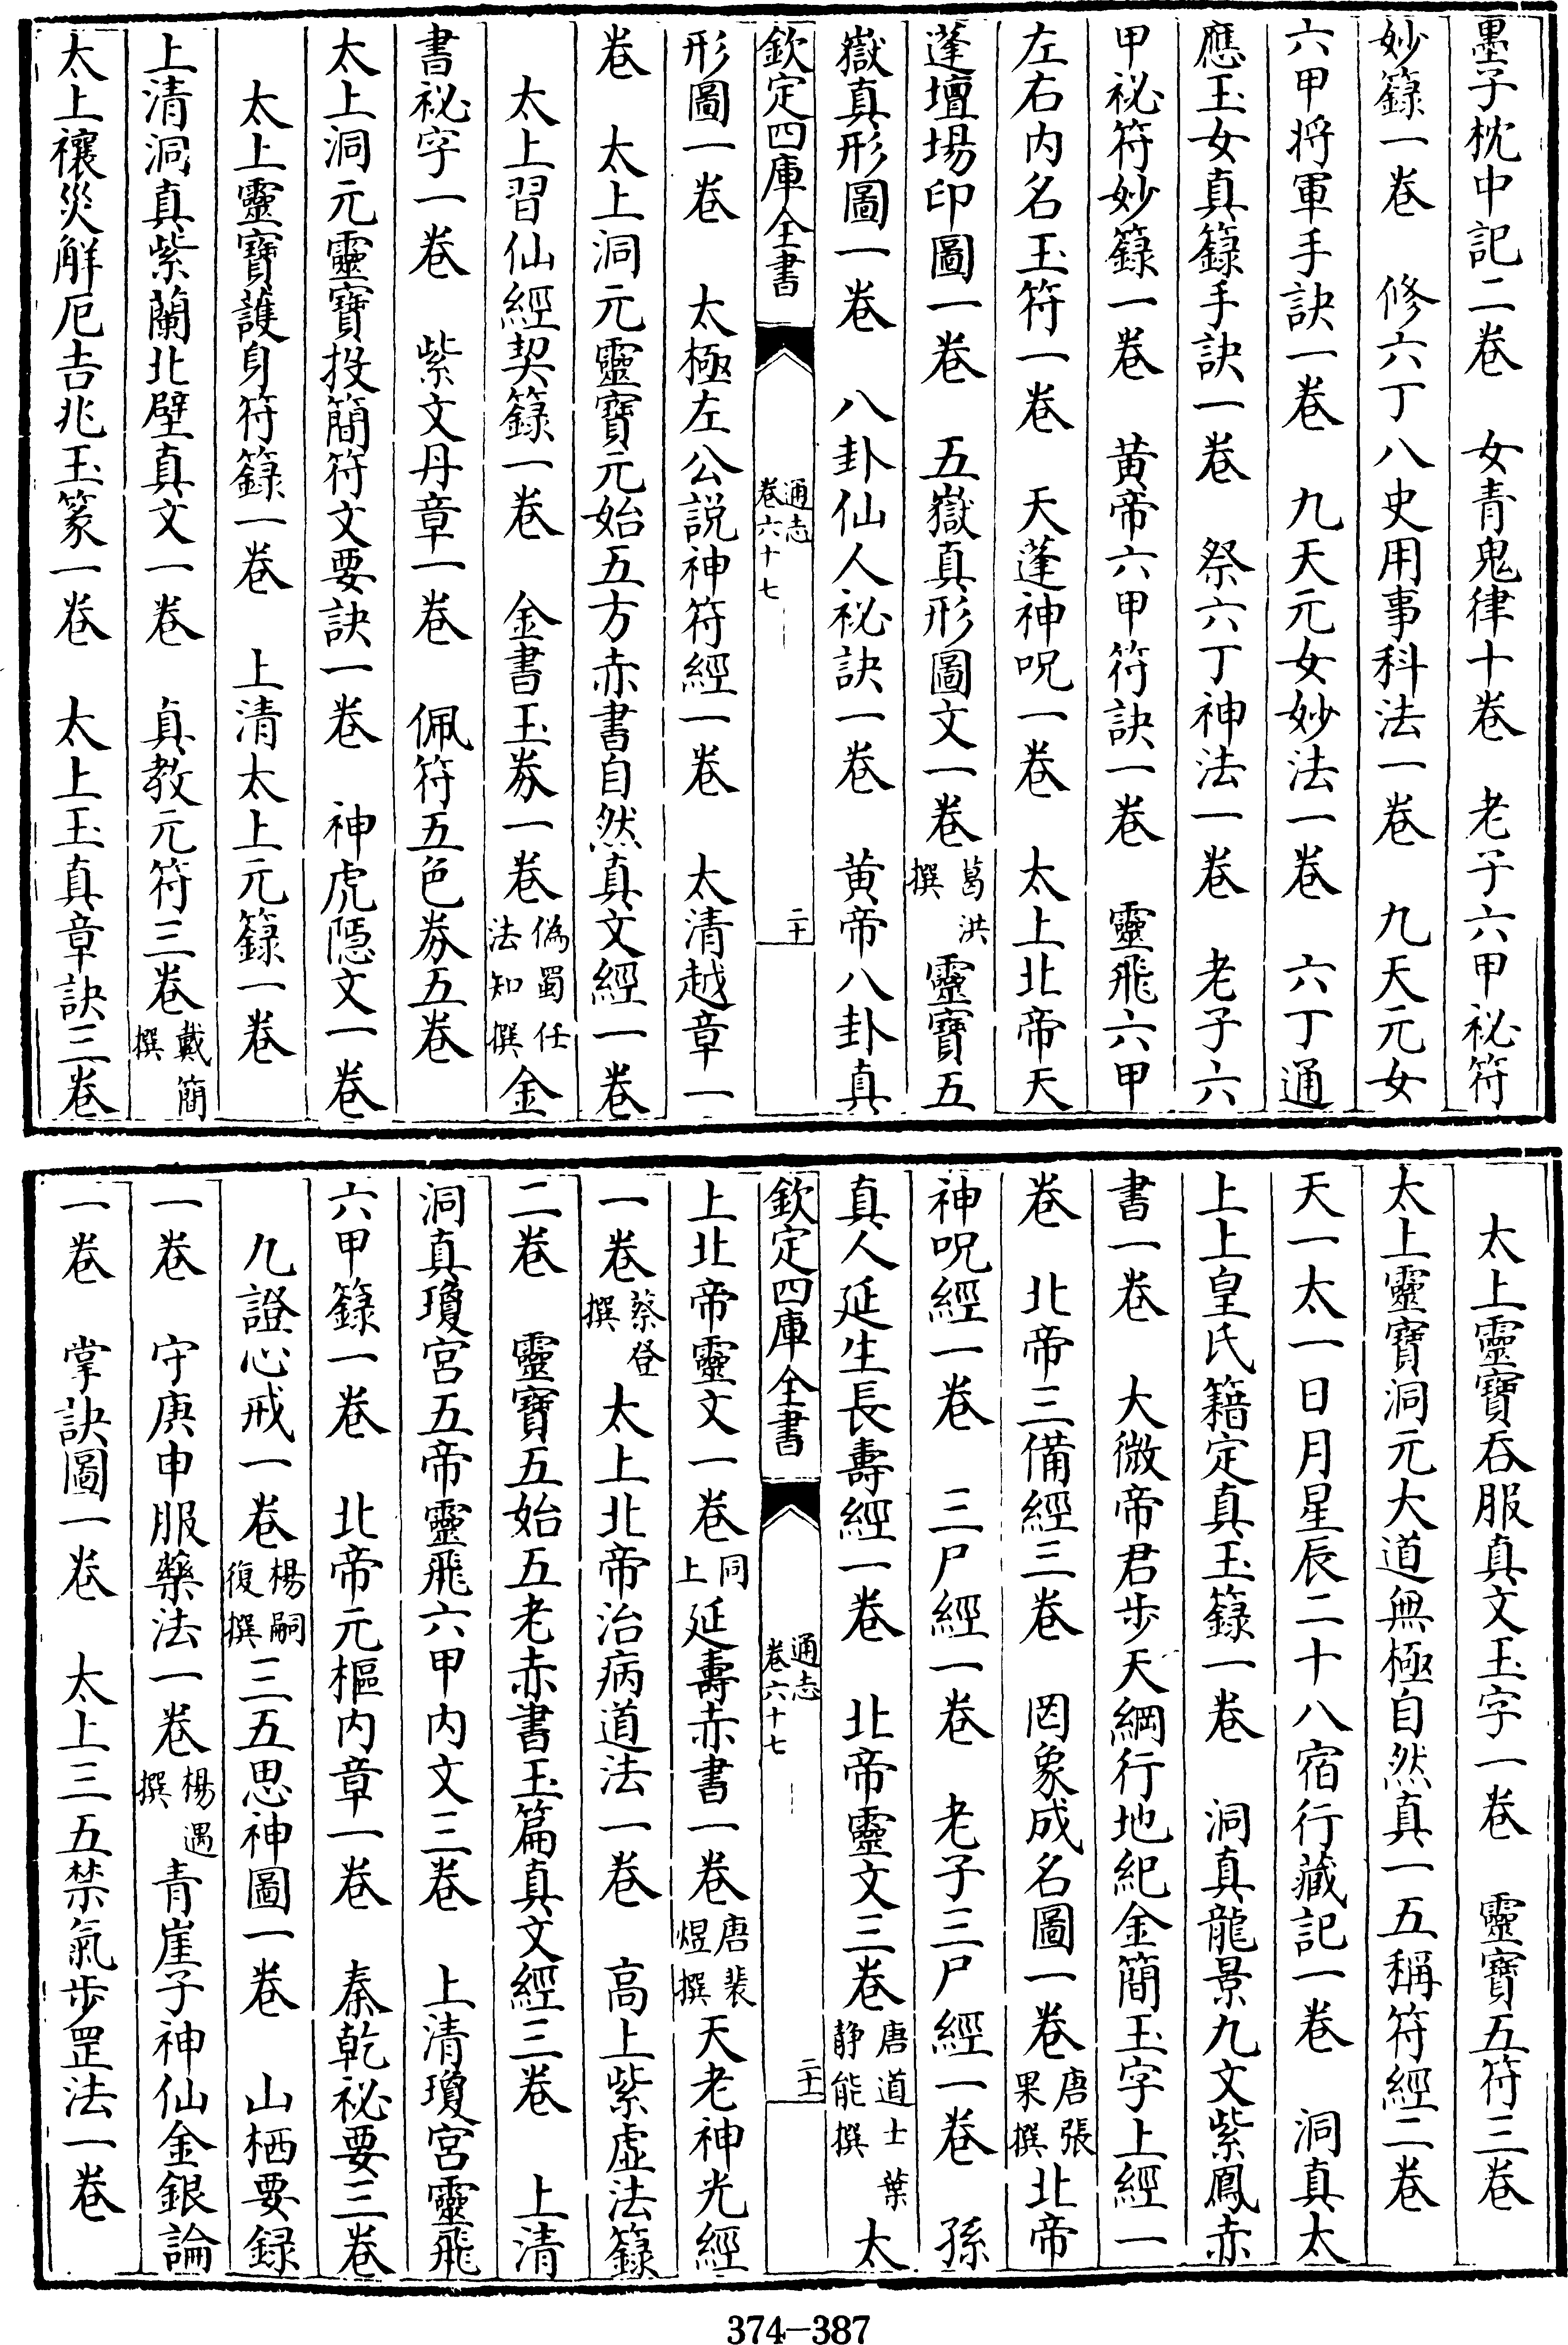 墨子枕中記二卷　女青鬼律十卷　老子六甲祕符
妙籙一卷　修六丁八史用事科法一卷　九天元女
六甲将軍手訣一卷　九天元女妙法一卷　六丁通
應玉女真籙手訣一卷　祭六丁神法一卷　老子六
甲祕符妙籙一卷　黄帝六甲符訣一卷　靈飛六甲
左右内名玉符一卷　天蓬神呪一卷　太上北帝天
蓬壇場印圖一卷　五嶽真形圖文一卷葛洪撰　靈寶五
嶽真形圖一卷　八卦仙人祕訣一卷　黄帝八卦真
欽定四庫全書　通志卷六十七　二十
形圖一卷　太極左公説神符經一卷　太清越章一
卷　太上洞元靈寶元始五方赤書自然真文經一卷
太上習仙經契籙一卷　金書玉券一卷偽蜀任法知撰　金
書祕字一卷　紫文丹章一卷　佩符五色券五卷
太上洞元靈寶投簡符文要訣一卷　神虎隠文一卷
太上靈寶護身符籙一卷　上清太上元籙一卷
上清洞真紫蘭北壁真文一卷　真教元符三卷戴簡撰
太上禳災解厄吉兆玉篆一卷　太上玉真章訣三卷
太上靈寶吞服真文玉字一卷　靈寶五符三卷
太上靈寶洞元大道無極自然真一五稱符經二卷
天一太一日月星辰二十八宿行藏記一卷　洞真太
上上皇氏籍定真玉籙一卷　洞真龍景九文紫鳳赤
書一卷　大微帝君步天綱行地紀金簡玉字上經一
卷　北帝三備經三卷　罔象成名圖一卷唐張果撰　北帝
神呪經一卷　三尸經一卷　老子三尸經一卷　孫
真人延生長壽經一卷　北帝靈文三卷唐道士葉静能撰　太
欽定四庫全書　通志卷六十七　二十一
上北帝靈文一卷同上　延壽赤書一卷唐裴煜撰　天老神光經
一卷蔡登撰　太上北帝治病道法一卷　高上紫虚法籙
二卷　靈寶五始五老赤書玉篇真文經三卷　上清
洞真瓊宫五帝靈飛六甲内文三卷　上清瓊宫靈飛
六甲籙一卷　北帝元樞内章一卷　秦乾祕要三卷
九證心戒一卷楊嗣復撰　三五思神圖一卷　山栖要録
一卷　守庚申服藥法一卷楊遇撰　青崖子神仙金銀論
一卷　掌訣圖一卷　太上三五禁氣步罡法一卷
374-387